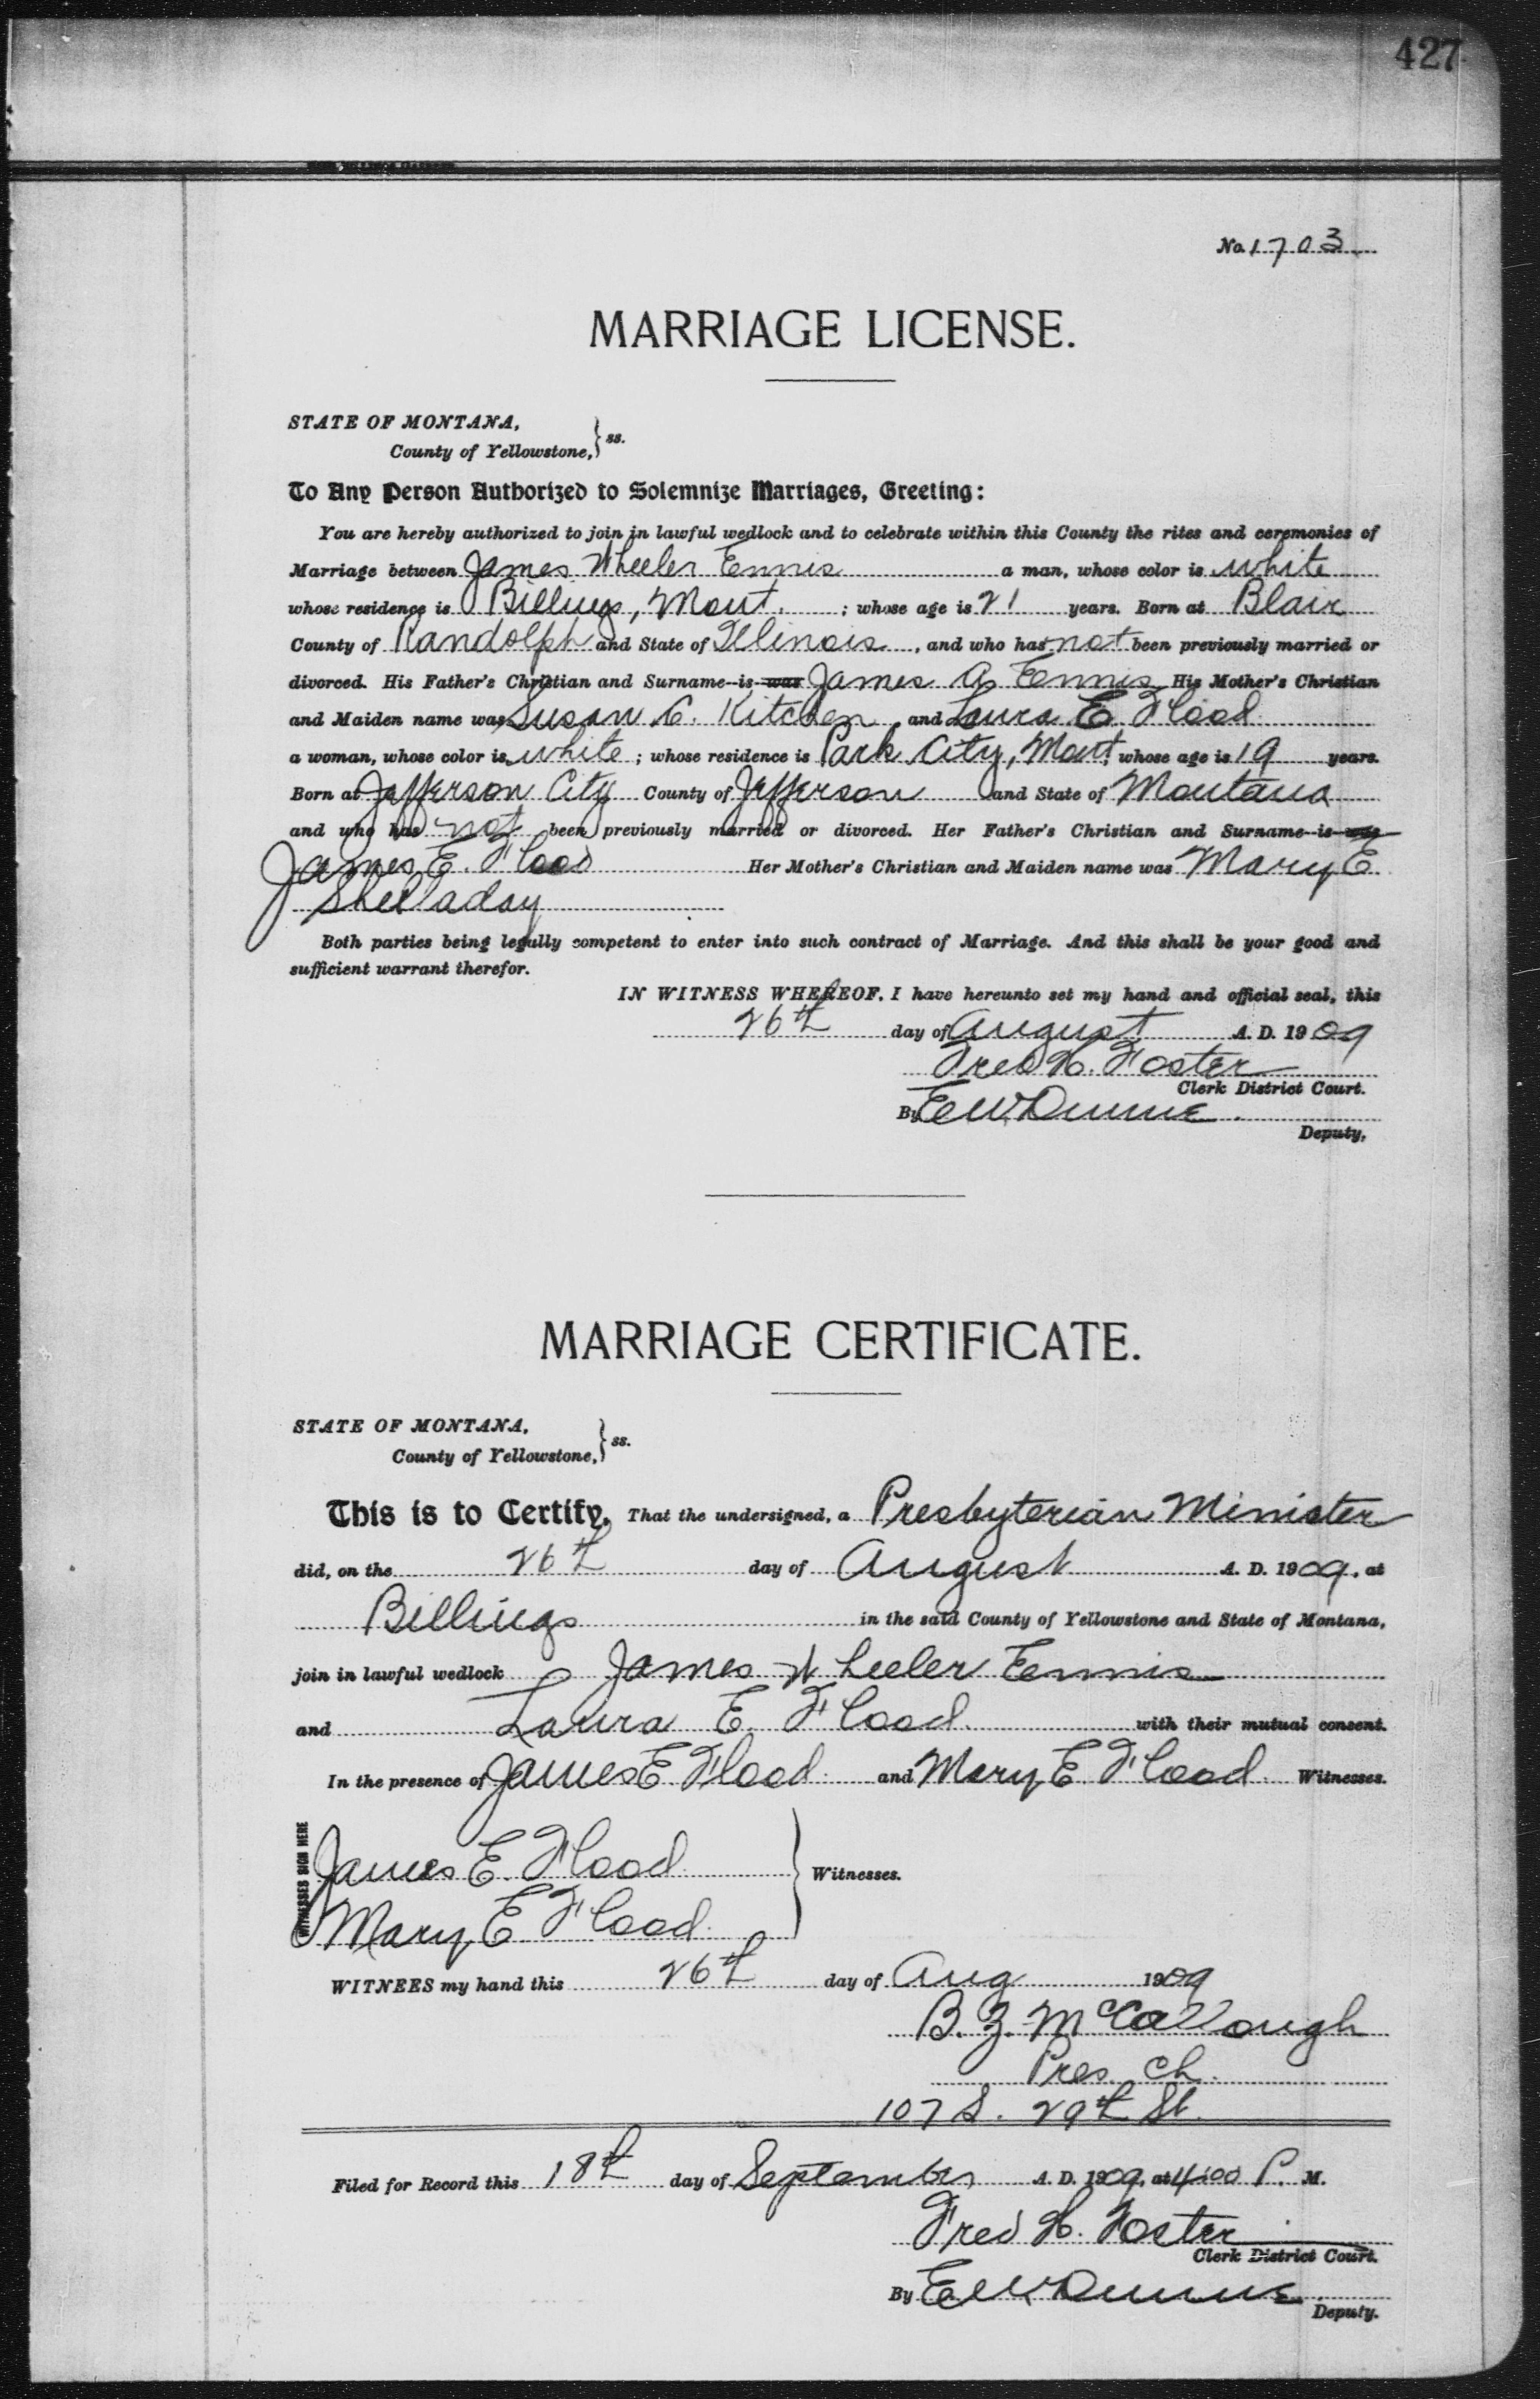 427
No. 1703
MARRIAGE LICENSE.
STATE OF MONTANA,
County of Yellowstone, } ss.
To Any Person Authorized to Solemnize Marriages, Greeting:
You are hereby authorized to join in lawful wedlock and to celebrate within this County the rites and ceremonies of
Marriage between James Wheeler Ennis a man, whose color is white
whose residence is Billings, Mont. ; whose age is 21 years. Born at Blair
County of Randolph and State of Illinois, and who has not been previously married or
divorced. His Father's Christian and Surname is was James A. Ennis His Mother's Christian
and Maiden name was Susan C. Kitchen and Laura E Flood
a woman, whose color is white ; whose residence is Park City, Mont. whose age is 19 years.
Born at Jefferson City County of Jefferson and State of Montana
and who has not been previously married or divorced. Her Father's Christian and Surname is was
James E. Flood Her Mother's Christian and Maiden name was Mary E
Shelladay
Both parties being legally competent to enter into such contract of Marriage. And this shall be your good and
sufficient warrant therefor.
IN WITNESS WHEREOF, I have hereunto set my hand and official seal, this
26th day of August A. D. 1909
Fred H. Foster
Clerk District Court.
By E W Dunne
Deputy,
MARRIAGE CERTIFICATE.
STATE OF MONTANA,
County of Yellowstone, } ss.
This is to Certify, That the undersigned, a Presbyterian Minister
did, on the 26th day of August A. D. 1909, at
Billings in the said County of Yellowstone and State of Montana,
join in lawful wedlock James Wheeler Ennis
and Laura E. Flood with their mutual consent.
In the presence of James E Flood and Mary E. Flood Witnesses.
WITNESSES SIGN HERE
James E. Flood
Witnesses.
Mary E Flood
WITNEES my hand this 26th day of Aug 1909
B. Z. McCollough
Pres. Ch.
107 S. 29th St.
Filed for Record this 18th day of September A. D. 1909, at 4:00 P. M.
Fred H. Foster
Clerk District Court.
By E W Dunne
Deputy.